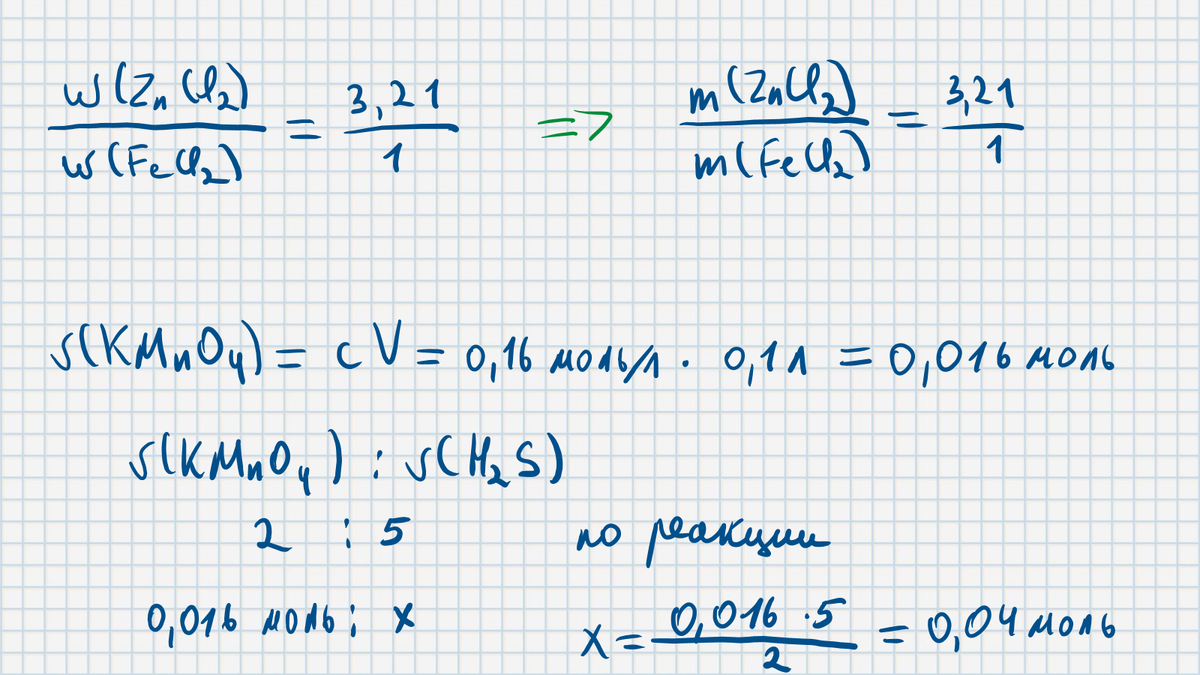 w(ZnCl2)/w(FeCl2) = 3,21/1 => m(ZnCl2)/m(FeCl2) = 3,21/1
ν(KMnO4) = cV = 0,16 моль/л · 0,1 л = 0,016 моль
ν(KMnO4) : ν(H2S)
2 : 5 по реакции
0,016 моль : x x = 0,016 · 5/2 = 0,04 моль